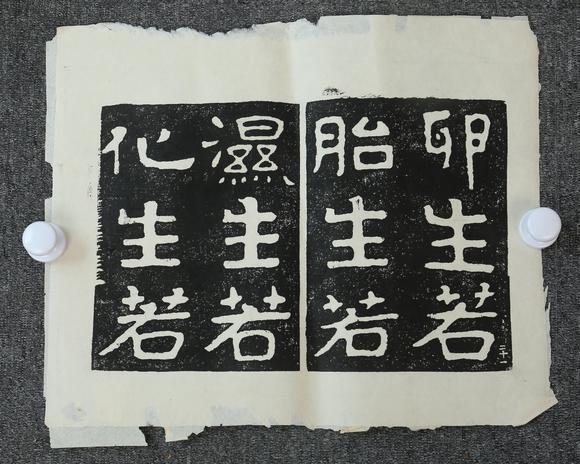 卵生若
胎生若
濕生若
化生若
二十一